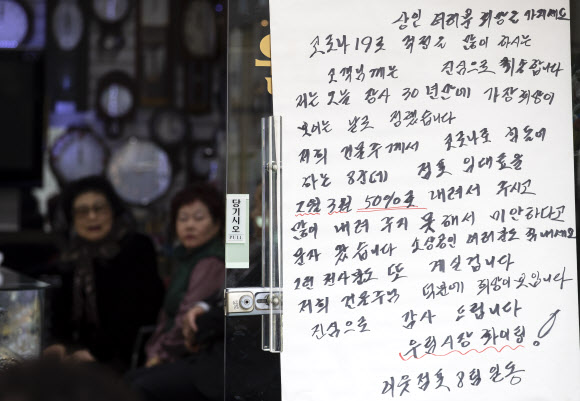 상인 여러분 희망을 가지세요
코로나 19로 걱정을 많이 하시는
고객님께는 진심으로 죄송합니다
저는 오늘 장사 30년만에 가장 희망이
보이는 날로 정했습니다
저희 건물주께서 코로나로 힘들어
하는 8개 점포 임대료를
2월 3월 50%로 내려서 주시고
많이 내려 주지 못해서 미안하다고
문자 왔습니다 소상공인 여러분도 힘내세요
이런 천사분도 또 계실겁니다
저희 건물주님 덕분에 희망이 보입니다
진심으로 감사 드립니다
우리시장 화이팅!
이웃점포 8명 일동
당기시오
PULL